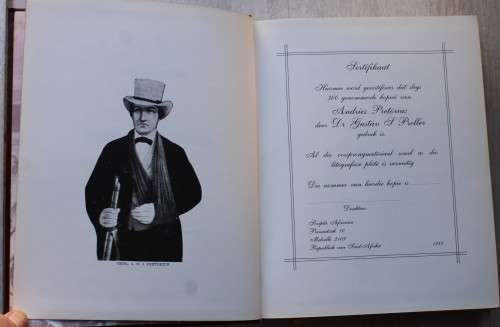 GENL. A. W. J. PRETORIUS
Sertifikaat
Hiermee word gesertifiseer dat slegs
200 genommerde kopieë van
Andries Pretorius
deur Dr Gustav S Preller
gedruk is.
Al die oorspronqmateriaal sowel as die
litografiese plate is vernietig
Die nommer van hierdie kopie is
Direkteur
Scripta Africana
Posbus 10
Melville 2109
Republiek van Suid-Afrika
1988